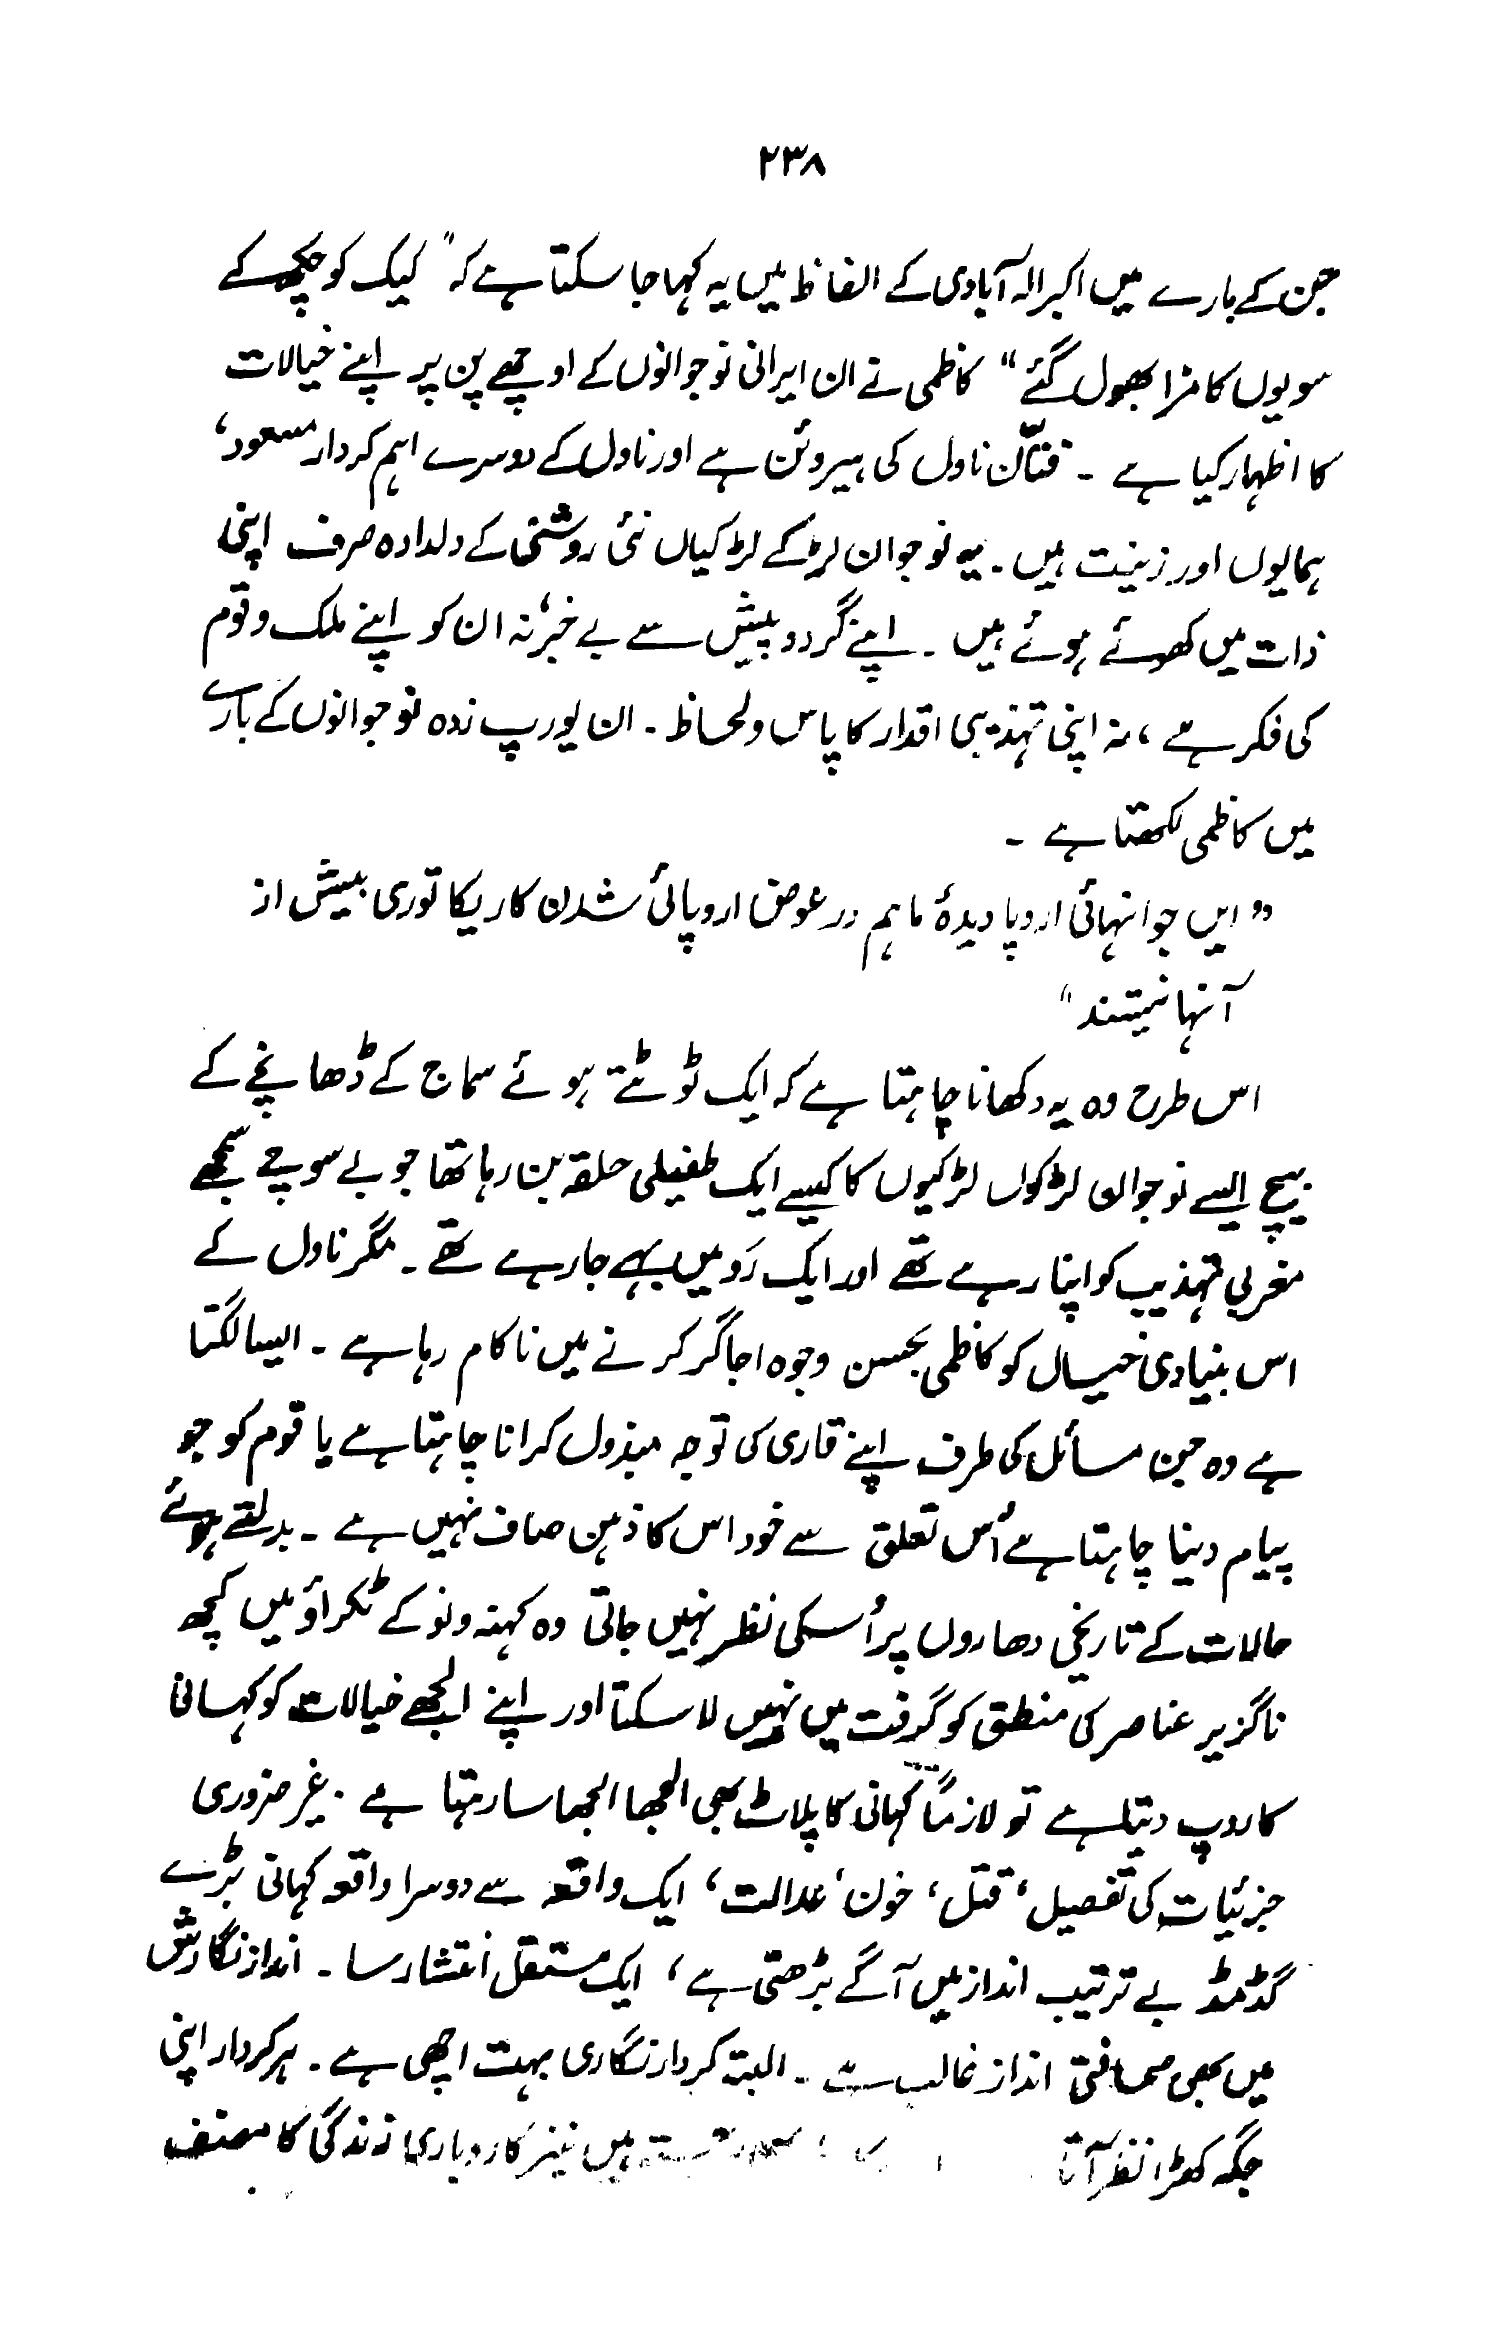 ۲۳۸
جن کے بارے میں اکبر الہ آبادی کے الفاظ میں یہ کہا جا سکتا ہے کہ " کیک کو چکھ کے
سویوں کا مزا بھول گئے " کاظمی نے ان ایرانی نوجوانوں کے اوچھے پن پر اپنے خیالات
کا اظہار کیا ہے ۔ فتّان ناول کی ہیروئن ہے اور ناول کے دوسرے اہم کردار مسعود ،
ہمالیوں اور زینت ہیں ۔ یہ نوجوان لڑکے لڑکیاں نئی روشنی کے دلدادہ صرف اپنی
ذات میں کھوئے ہوئے ہیں ۔ اپنے گردوپیش سے بے خبر، نہ ان کو اپنے ملک و قوم
کی فکر ہے ، نہ اپنی تہذیبی اقدار کا پاس و لحاظ ۔ ان یورپ زدہ نوجوانوں کے بارے
میں کاظمی لکھتا ہے ۔
" ایں جوانہائی اروپا دیدۂ ماہم در عوض اروپائی شدن کاریکاتوری بیش از
آنہا نیستند "
اس طرح وہ یہ دکھانا چاہتا ہے کہ ایک ٹوٹتے ہوئے سماج کے ڈھانچے کے
بیچ ایسے نوجوان لڑکوں لڑکیوں کا کیسے ایک طفیلی حلقہ بن رہا تھا جو بے سوچے سمجھے
مغربی تہذیب کو اپنا رہے تھے اور ایک رَو میں بہے جا رہے تھے ۔ مگر ناول کے
اس بنیادی خیال کو کاظمی بحسن وجوہ اجاگر کرنے میں ناکام رہا ہے ۔ ایسا لگتا
ہے وہ جن مسائل کی طرف اپنے قاری کی توجہ مبذول کرانا چاہتا ہے یا قوم کو جو
پیام دینا چاہتا ہے اُس تعلق سے خود اس کا ذہن صاف نہیں ہے ۔ بدلتے ہوئے
حالات کے تاریخی دھاروں پر اُسکی نظر نہیں جاتی وہ کہنہ و نو کے ٹکراؤ میں کچھ
ناگزیر عناصر کی منطق کو گرفت میں نہیں لا سکتا اور اپنے الجھے خیالات کو کہانی
کا روپ دیتا ہے تو لازماً کہانی کا پلاٹ بھی الجھا الجھا سا رہتا ہے ۔ غیر ضروری
جزئیات کی تفصیل ، قتل ، خون ، عدالت ، ایک واقعہ سے دوسرا واقعہ کہانی بڑے
گڈمڈ بے ترتیب انداز میں آگے بڑھتی ہے ، ایک مستقل انتشار سا ۔ انداز نگارش
میں بھی صحافتی انداز غالب ہے ۔ البتہ کردار نگاری بہت اچھی ہے ۔ ہر کردار اپنی
جگہ کھڑا نظر آتا ہیں نیز کاروباری زندگی کا مصنف